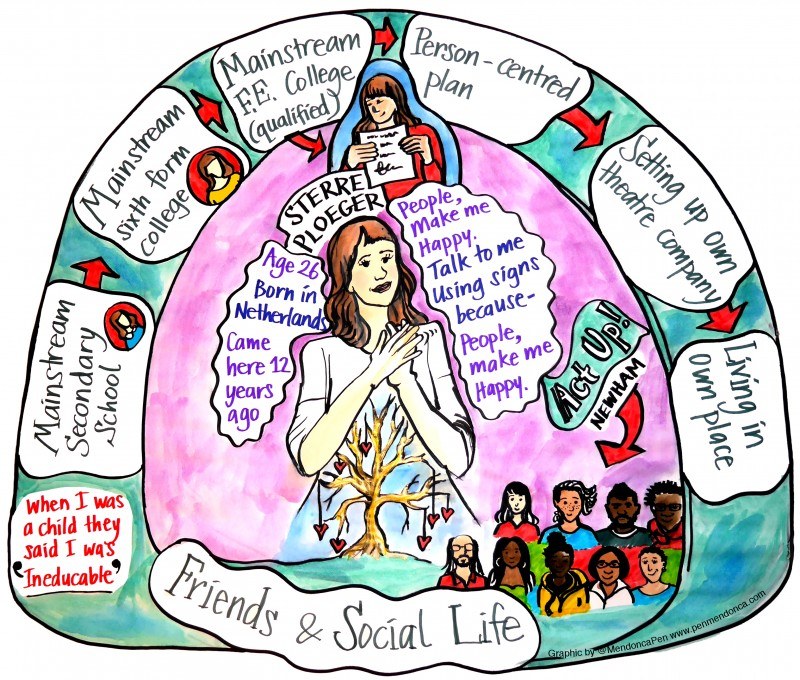 When I was
a child they
said I was
'Ineducable'
Mainstream
Secondary
School
Mainstream
sixth form
college
Mainstream
F.E. College
(qualified)
Person-centred
plan
Setting up own
theatre company
Living in
own place
STERRE
PLOEGER
Age 26
Born in
Netherlands
Came
here 12
years
ago
People,
make me
Happy.
Talk to me
Using signs
because-
People,
make me
Happy.
Act Up!
NEWHAM
Friends & Social Life
Graphic by @MendoncaPen www.penmendonca.com